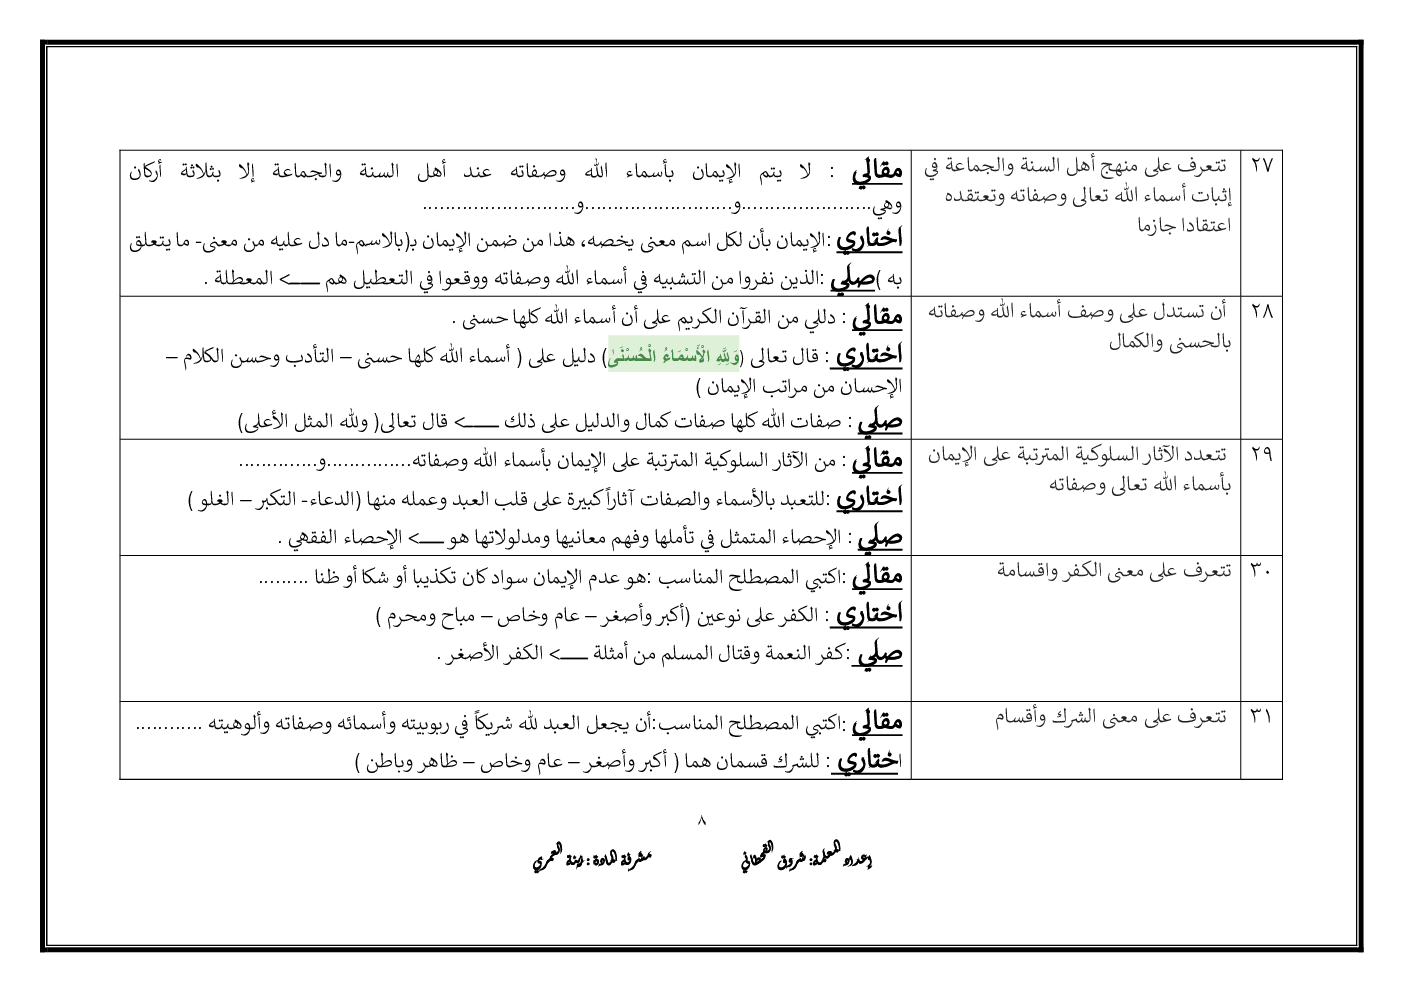 ٢٧
تتعرف على منهج أهل السنة والجماعة في
إثبات أسماء الله تعالى وصفاته وتعتقده
اعتقادا جازما
مقالي : لا يتم الإيمان بأسماء الله وصفاته عند أهل السنة والجماعة إلا بثلاثة أركان
وهي.......................و..........................و...........................
اختاري :الإيمان بأن لكل اسم معنى يخصه، هذا من ضمن الإيمان بـ(بالاسم-ما دل عليه من معنى- ما يتعلق
به )صلي :الذين نفروا من التشبيه في أسماء الله وصفاته ووقعوا في التعطيل هم ـــــ> المعطلة .
٢٨
أن تستدل على وصف أسماء الله وصفاته
بالحسنى والكمال
مقالي : دللي من القرآن الكريم على أن أسماء الله كلها حسنى .
اختاري : قال تعالى (وَلِلَّهِ الْأَسْمَاءُ الْحُسْنَىٰ) دليل على ( أسماء الله كلها حسنى – التأدب وحسن الكلام –
الإحسان من مراتب الإيمان )
صلي : صفات الله كلها صفات كمال والدليل على ذلك ـــــ> قال تعالى( ولله المثل الأعلى)
٢٩
تتعدد الآثار السلوكية المترتبة على الإيمان
بأسماء الله تعالى وصفاته
مقالي : من الآثار السلوكية المترتبة على الإيمان بأسماء الله وصفاته...............و..............
اختاري :للتعبد بالأسماء والصفات آثاراً كبيرة على قلب العبد وعمله منها (الدعاء- التكبر – الغلو )
صلي : الإحصاء المتمثل في تأملها وفهم معانيها ومدلولاتها هو ــــ> الإحصاء الفقهي .
٣٠
تتعرف على معنى الكفر واقسامة
مقالي :اكتبي المصطلح المناسب :هو عدم الإيمان سواد كان تكذيبا أو شكا أو ظنا .........
اختاري : الكفر على نوعين (أكبر وأصغر – عام وخاص – مباح ومحرم )
صلي :كفر النعمة وقتال المسلم من أمثلة ــــ> الكفر الأصغر .
٣١
تتعرف على معنى الشرك وأقسام
مقالي :اكتبي المصطلح المناسب:أن يجعل العبد لله شريكاً في ربوبيته وأسمائه وصفاته وألوهيته ............
اختاري : للشرك قسمان هما ( أكبر وأصغر – عام وخاص – ظاهر وباطن )
٨
إعداد المعلمة: شروق القحطاني مشرفة المادة : نبنة العمري